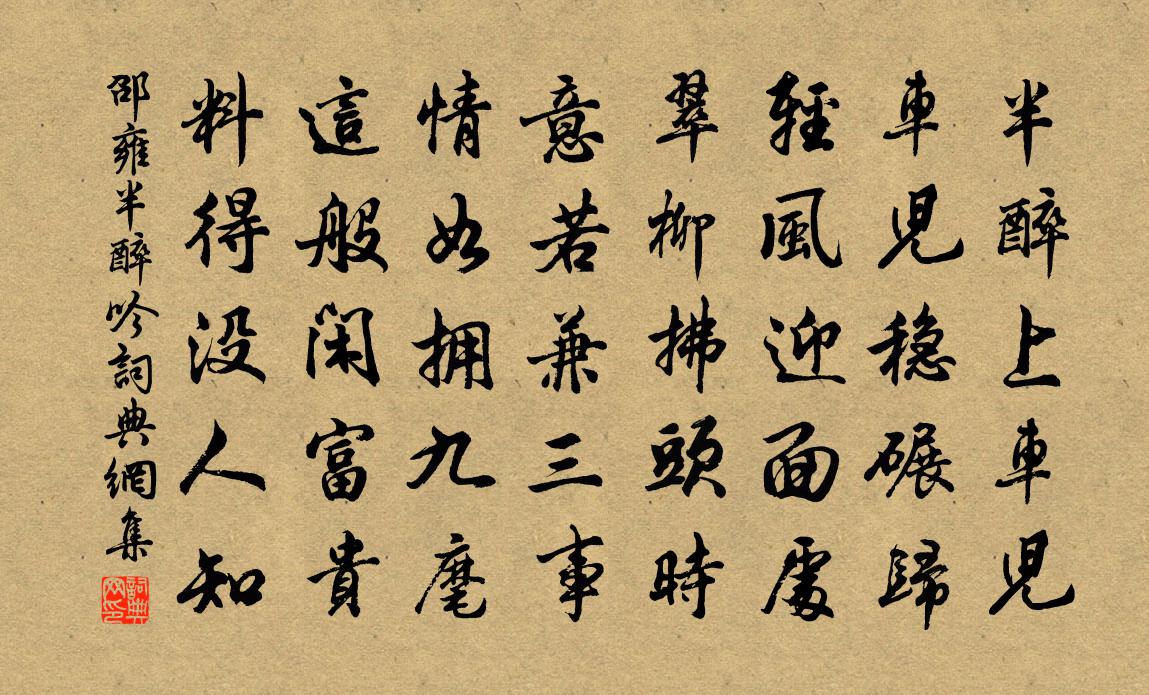 半醉上車兒
車兒穩碾歸
輕風迎面處
翠柳拂頭時
意若兼三事
情如擁九麾
這般閑富貴
料得沒人知
邵雍半醉吟詞典網集
詞典網印